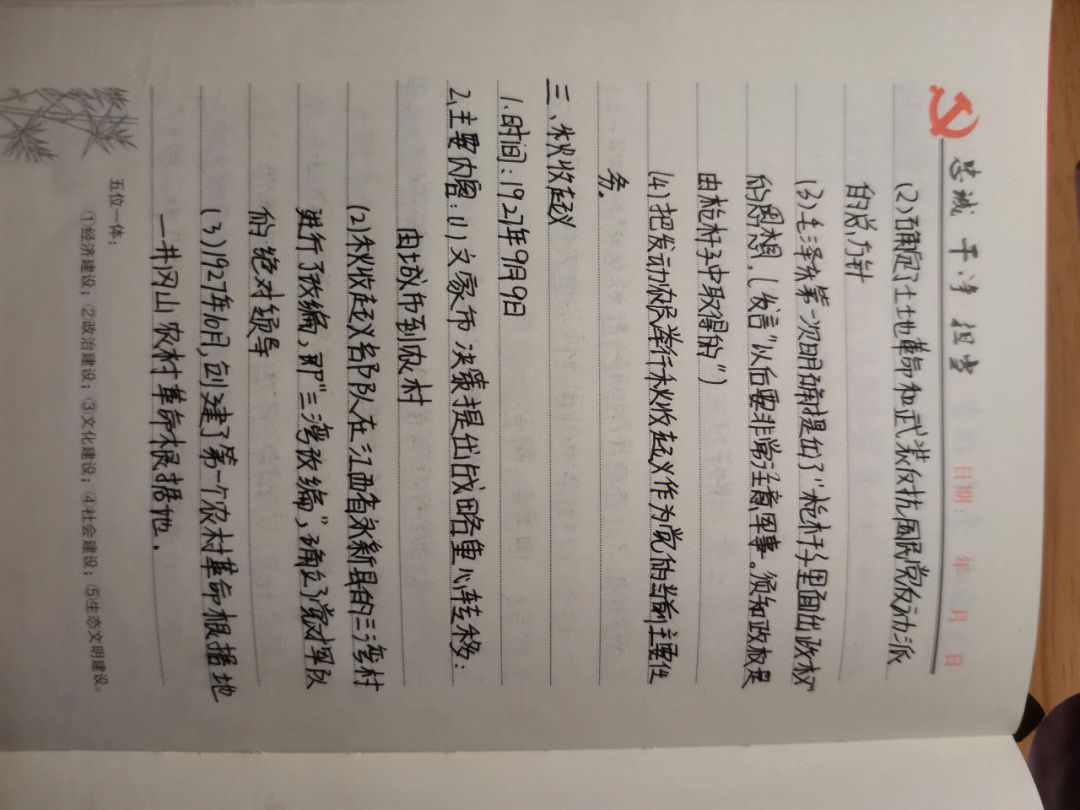 忠诚 干净 担当
日期: 年 月 日
(2)确定了土地革命和武装反抗国民党反动派
的总方针
(3)毛泽东第一次明确提出了“枪杆子里面出政权”
的思想.(发言“以后要非常注意军事。须知政权是
由枪杆子中取得的”)
(4)把发动农民举行秋收起义作为党的当前主要任
务。
三、秋收起义
1.时间:1927年9月9日
2.主要内容:(1)文家市决策提出战略重心转移:
由城市到农村
(2)秋收起义部队在江西省永新县的三湾村
进行了改编,即“三湾改编”,确立了党对军队
的绝对领导
(3)1927年10月,创建了第一个农村革命根据地
—井冈山农村革命根据地.
五位一体:
①经济建设;②政治建设;③文化建设;④社会建设;⑤生态文明建设。